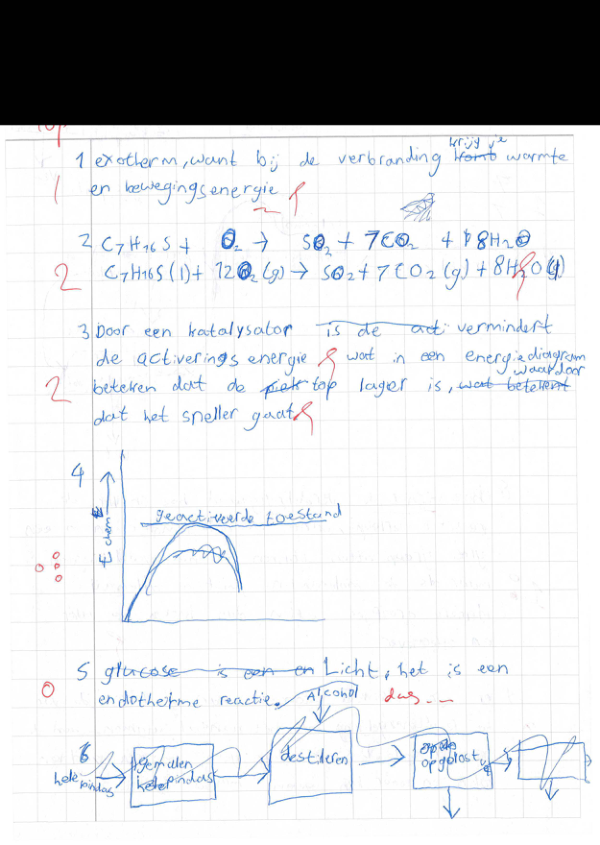 Top
1 exotherm, want bij de verbranding krijg je warmte
1 en bewegingsenergie
2 C7H16S + O2 → SO2 + 7CO2 + 8H2O
2 C7H16S(l) + 12O2(g) → SO2 + 7CO2(g) + 8H2O(g)
3 Door een katalysator is de act vermindert
de activerings energie wat in een energiediagram
2 beteken dat de piek top lager is, wat betekent waardoor
dat het sneller gaat
4
E chem
geactiveerde toestand
5 glucose is een en Licht, het is een
0 endotherme reactie. dus...
Alcohol
6
hele pindas
gemalen hele pindas
destileren
opgelost